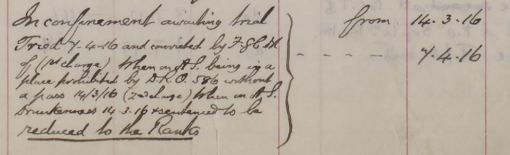 In confinement awaiting trial from 14.3.16
Tried 7.4.16 and convicted by F.G.C.M. - - - - 7.4.16
of (1st charge) When on A.S. being in a
place prohibited by D.R.O. 586 without
a pass 14/3/16 (2nd charge) When on A.S.
Drunkenness 14.3.16 & sentenced to be
reduced to the Ranks